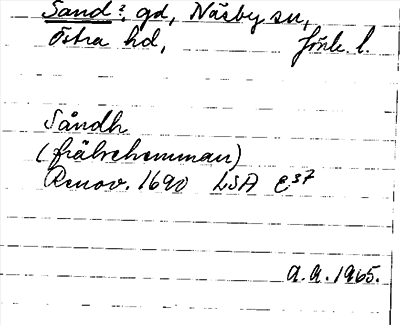 Sand ? gd, Näsby sn,
Östra hd, Jönk. l.
Såndh
(frälsehemman)
Renov. 1690 LSA E37
A.A. 1965.